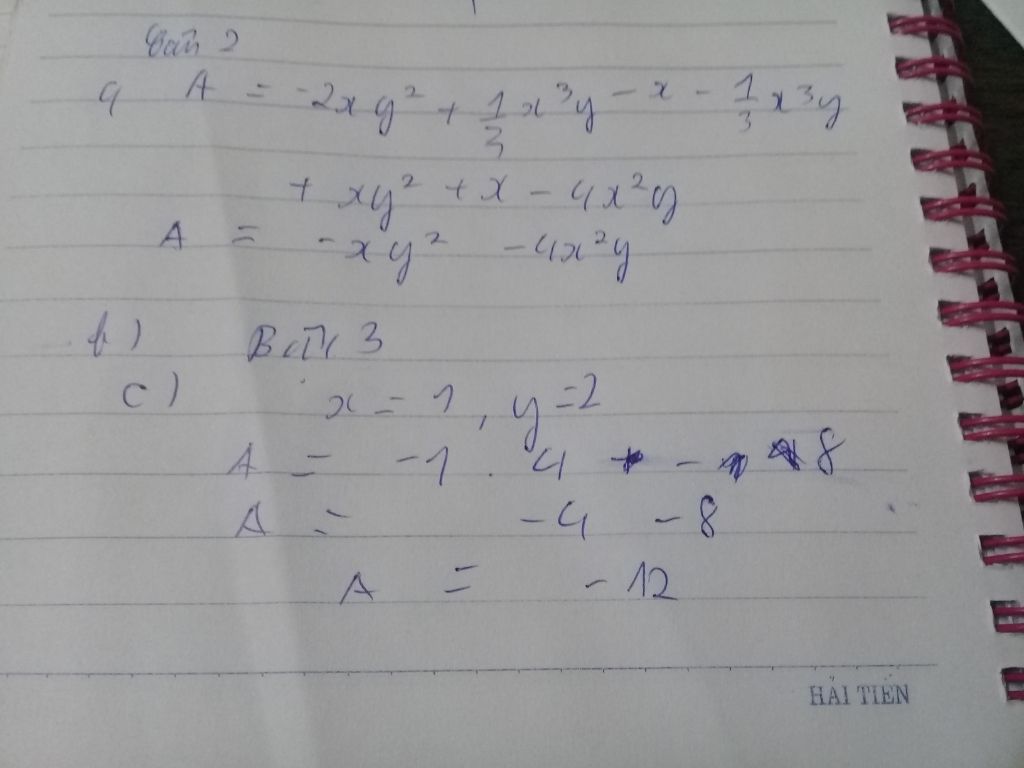 Bài 2
a) A = -2xy² + 1/3 x³y - x - 1/3 x³y
+ xy² + x - 4x²y
A = -xy² - 4x²y
b) Bậc 3
c) x = 1, y = 2
A = -1 . 4 - 8
A = -4 - 8
A = -12
HẢI TIẾN